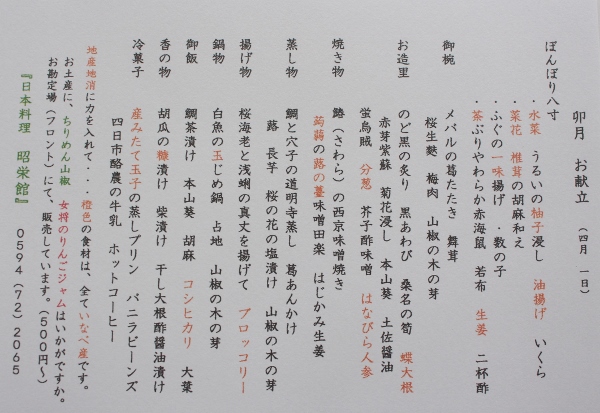 卯月 お献立 (四月 一日)
ぼんぼり八寸
・水菜 うるいの柚子浸し 油揚げ いくら
・菜花 椎茸の胡麻和え
・ふぐの一味揚げ ・数の子
茶ぶりやわらか赤海鼠 若布 生姜 二杯酢
御椀 メバルの葛たたき 舞茸
桜生麩 梅肉 山椒の木の芽
お造里 のど黒の炙り 黒あわび 桑名の筍 蝶大根
赤芽紫蘇 菊花浸し 本山葵 土佐醤油
蛍烏賊 分葱 芥子酢味噌 はなびら人参
焼き物 鰆(さわら)の西京味噌焼き
蒟蒻の蕗の薹味噌田楽 はじかみ生姜
蒸し物 鯛と穴子の道明寺蒸し 葛あんかけ
蕗 長芋 桜の花の塩漬け 山椒の木の芽
揚げ物 桜海老と浅蜊の真丈を揚げて ブロッコリー
鍋物 白魚の玉じめ鍋 占地 山椒の木の芽
御飯 鯛茶漬け 本山葵 胡麻 コシヒカリ 大葉
香の物 胡瓜の糠漬け 柴漬け 干し大根酢醤油漬け
冷菓子 産みたて玉子の蒸しプリン バニラビーンズ
四日市酪農の牛乳 ホットコーヒー
地産地消に力を入れて・・・橙色の食材は、全ていなべ産です。
お土産に、ちりめん山椒 女将のりんごジャムはいかがですか。
お勘定場(フロント)にて、販売しています。(500円~)
『日本料理 昭栄館』 0594(72)2065